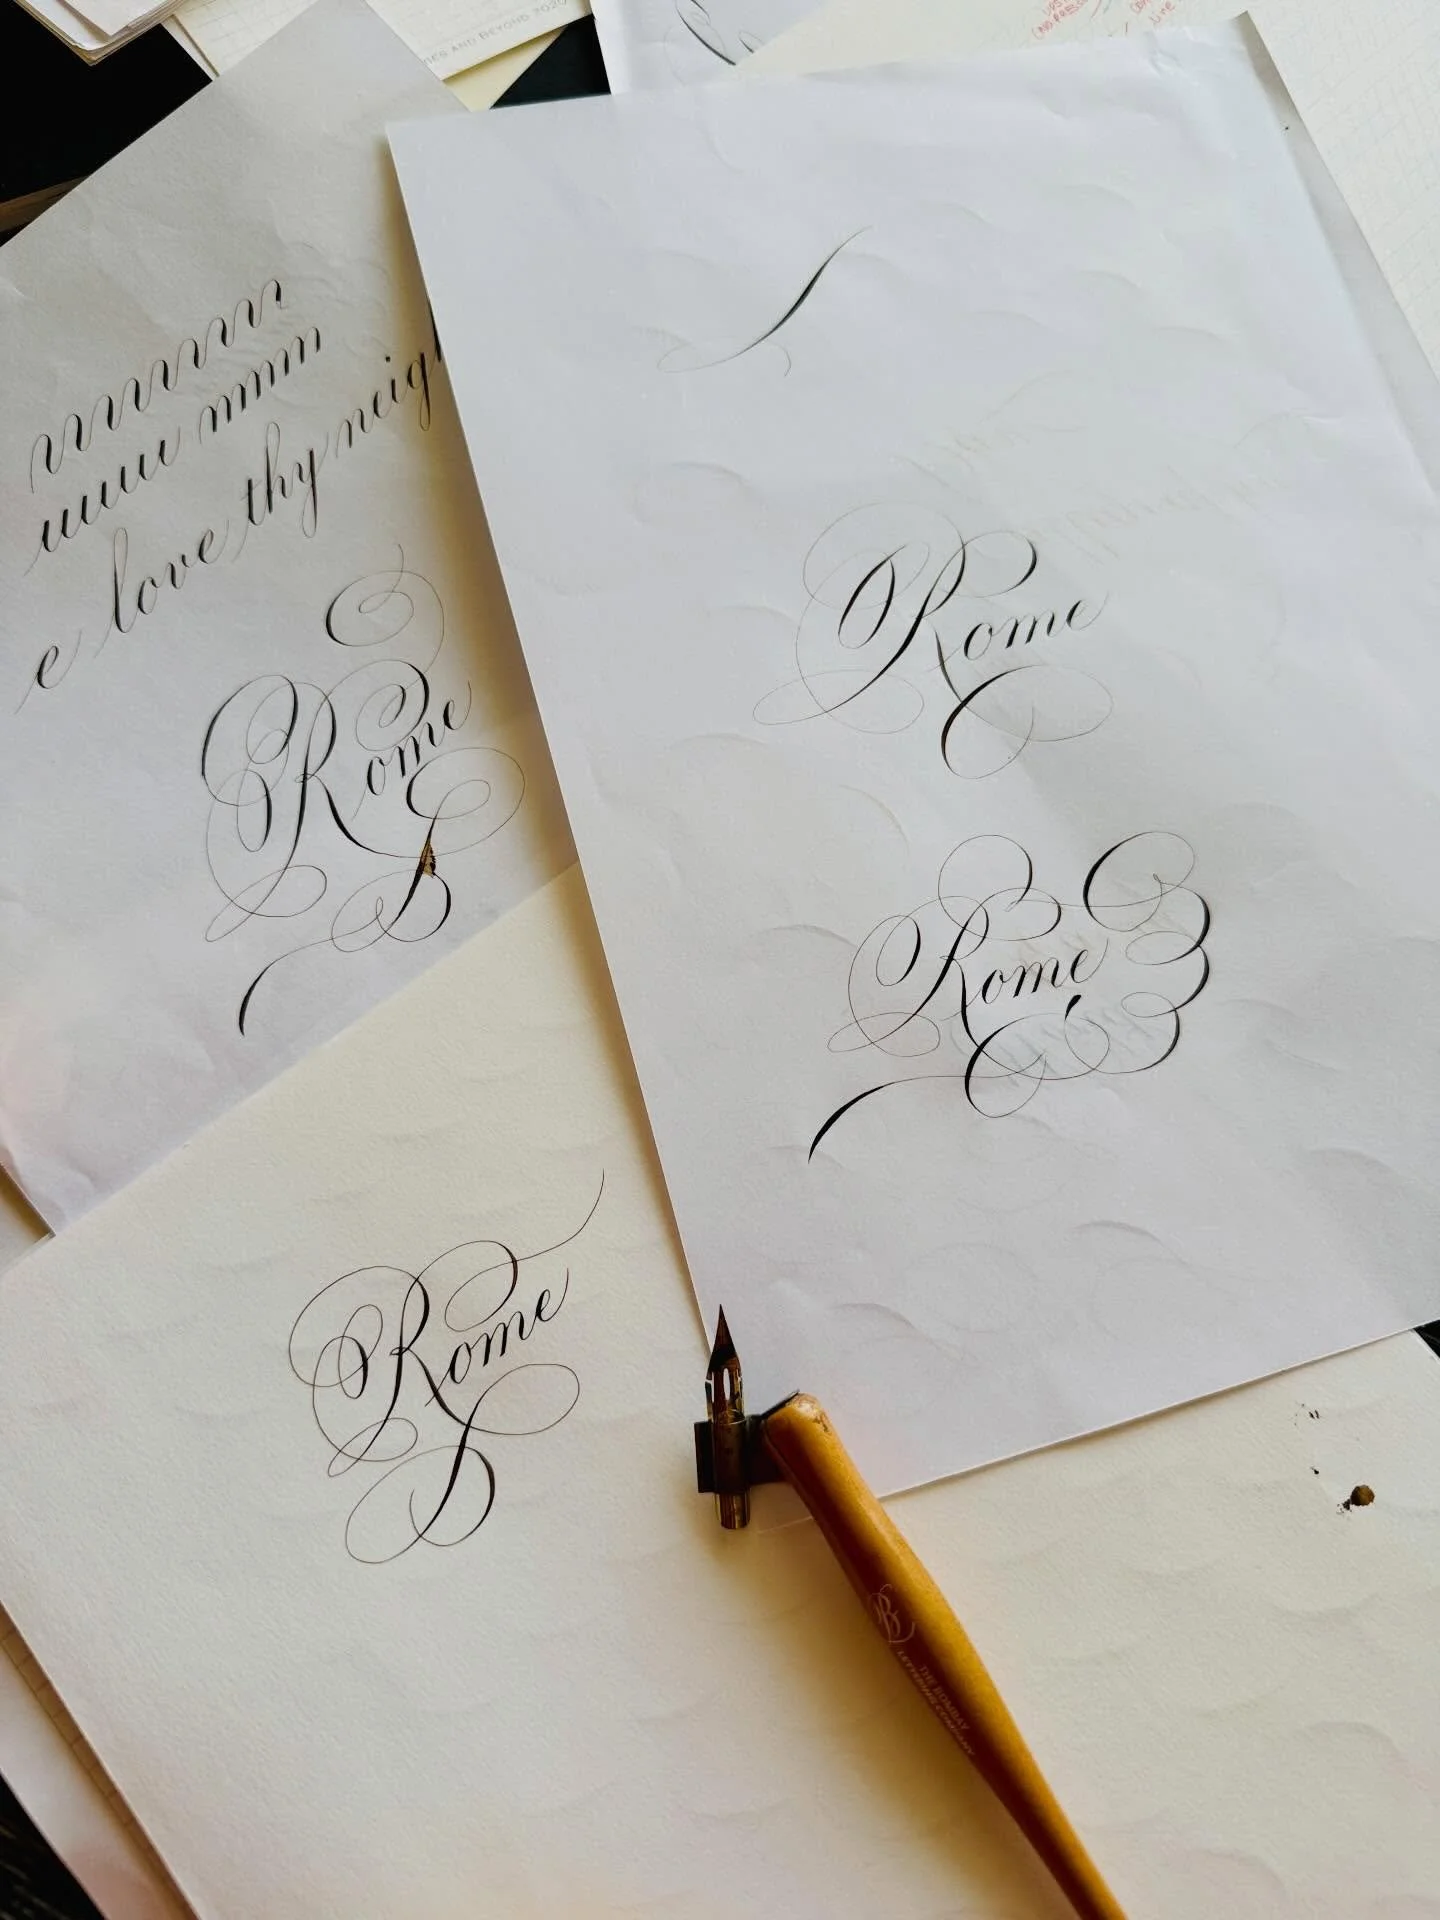 IES AND BEYOND 2020
nnnnnnn
uuuu nmmn
e love thy neigh
Rome
Rome
Rome
Rome
THE BOMBAY
LETTERING COMPANY